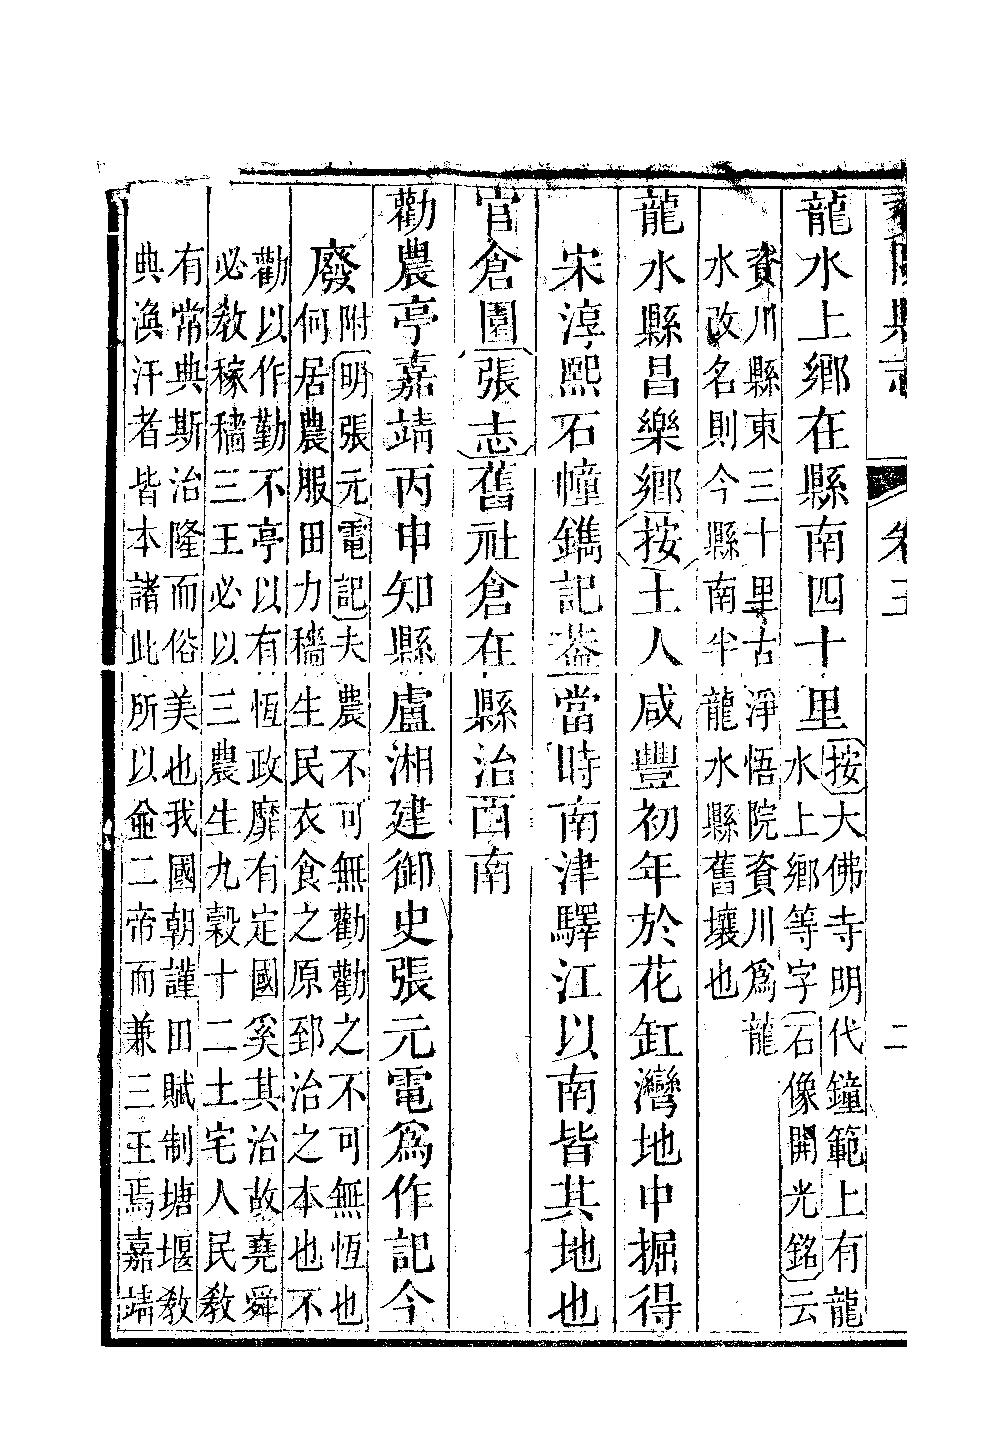 陽縣志 卷三 二
龍水上鄉在縣南四十里
按大佛寺明代鐘範上有龍
水上鄉等字石像開光銘云
資川縣東三十里古淨悟院資川爲龍
水改名則今縣南半龍水縣舊壤也
龍水縣昌樂鄉按土人咸豐初年於花缸灣地中掘得
宋淳熙石幢鐫記葢當時南津驛江以南皆其地也
官倉園張志舊社倉在縣治西南
勸農亭嘉靖丙申知縣盧湘建御史張元電爲作記今
廢
附明張元電記夫農不可無勸勸之不可無恆也
何居農服田力穡生民衣食之原郅治之本也不
勸以作勤不亭以有恆政靡有定國奚其治故堯舜
必敎稼穡三王必以三農生九穀十二土宅人民敎
有常典斯治隆而俗美也我國朝謹田賦制塘堰敎
典渙汗者皆本諸此所以兪二帝而兼三王焉嘉靖